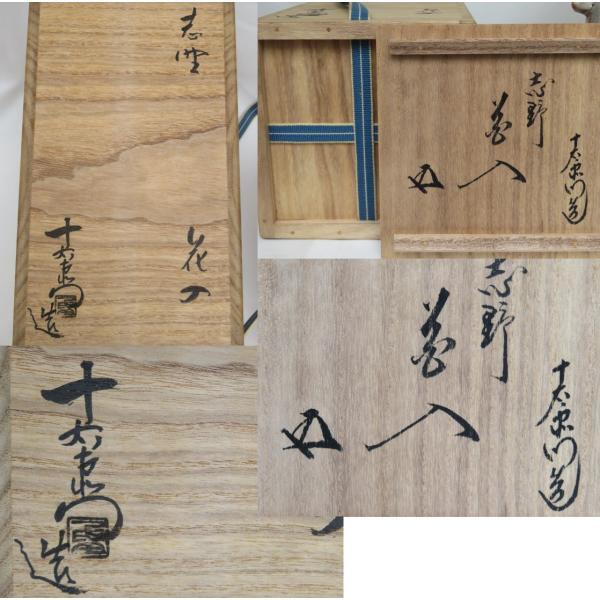 志野
花入
十右衛門
造
志野
花入
十右衛門造
十右衛門
造
志野
花入
十右衛門造